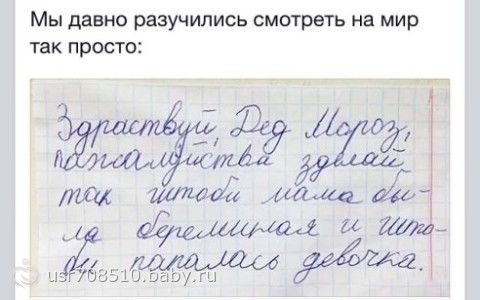 Мы давно разучились смотреть на мир
так просто:
Здраствуй, Дед Мороз,
пажалуйства зделай
так читоби мама бы-
ла береминая и што-
би папалась девочка.
usr708510.baby.ru